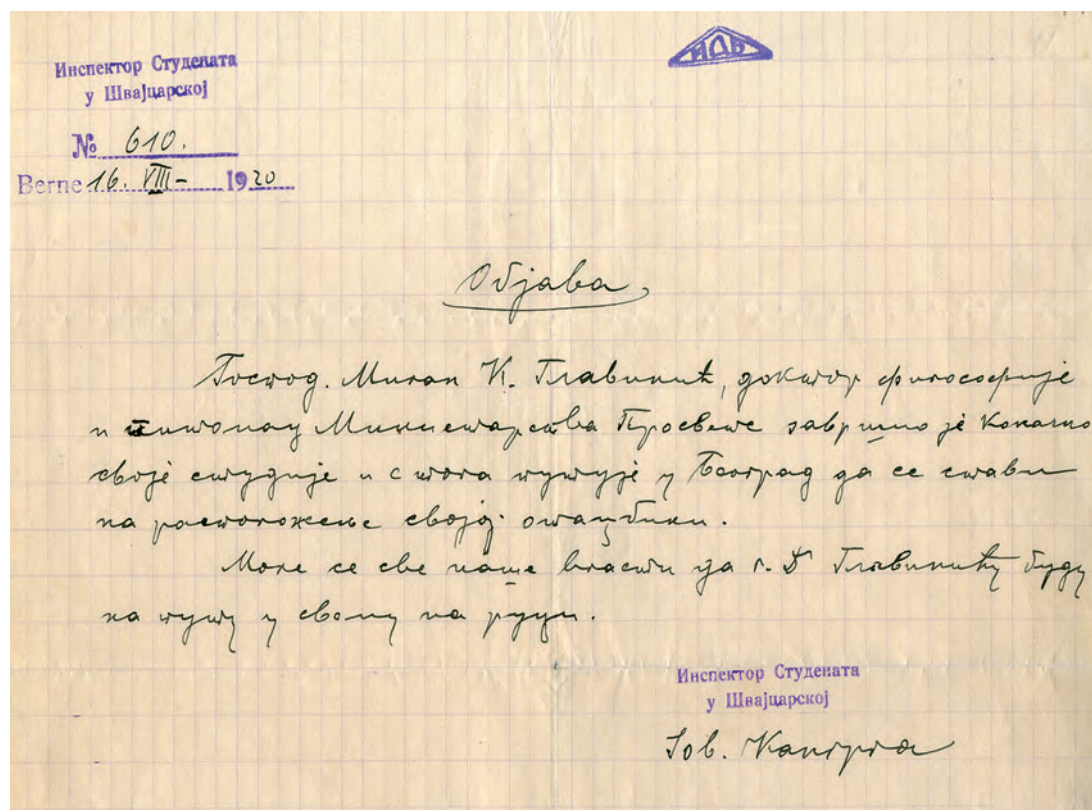 Инспектор Студената
у Швајцарској
№ 610.
Berne 16. VIII - 1920
Објава
Господ. Милан К. Главинић, доктор философије
и питомац Министарства Просвете завршио је коначно
своје студије и с тога путује у Београд да се стави
на расположење својој отаџбини.
Моле се све наше власти да г. Dr Главинићу буду
на путу у свему на руци.
Инспектор Студената
у Швајцарској
Јов.